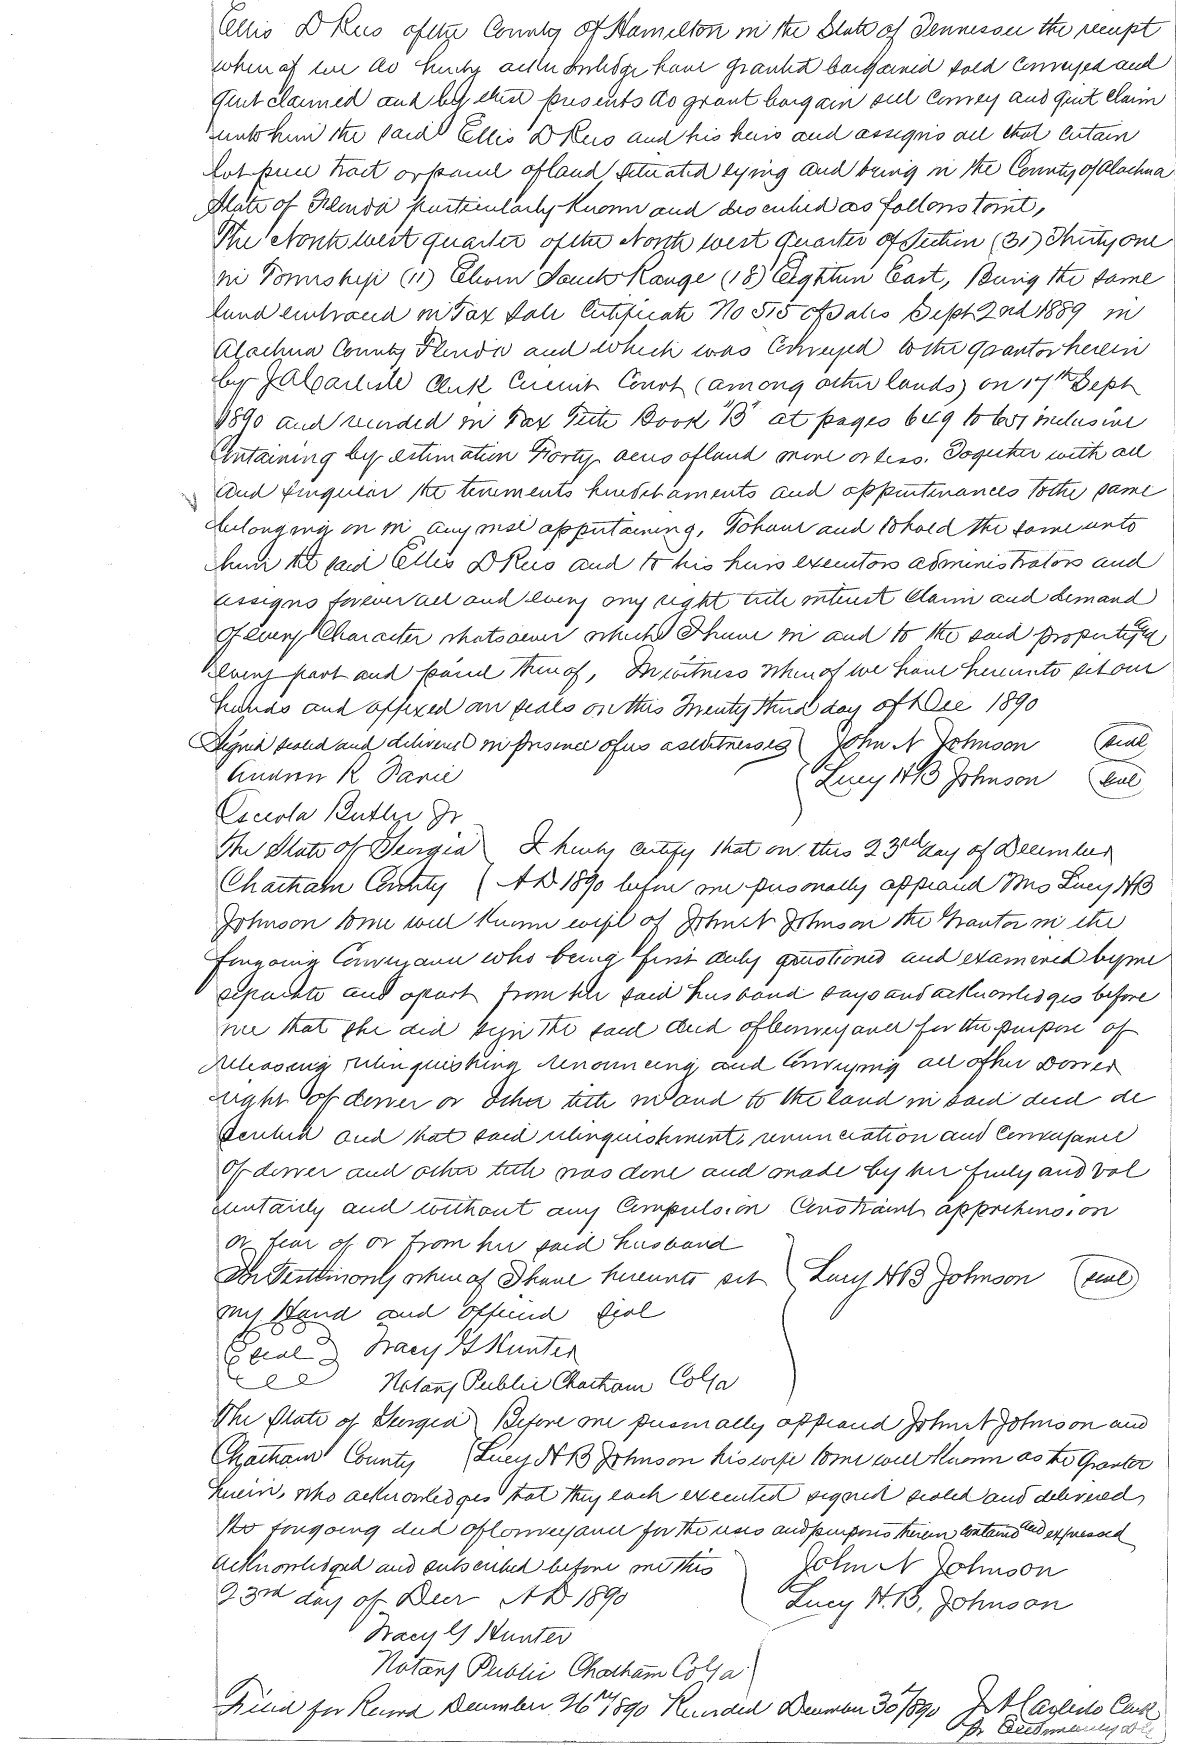 Ellis D Rees of the County of Hamilton in the State of Tennessee the receipt
where of we do hereby acknowledge have granted bargained sold conveyed and
quit claimed and by these presents do grant bargain sell convey and quit claim
unto him the said Ellis D Rees and his heirs and assigns all that certain
lot piece tract or parcel of land situated lying and being in the County of Alachua
State of Florida particularly known and described as follows towit,
The North west quarter of the North west Quarter of Section (31) Thirty one
in Township (11) Eleven South Range (18) Eighteen East, Being the same
land embraced in Tax Sale Certificate No 515 of Sales Sept 2nd 1889 in
Alachua County Florida and which was conveyed to the grantor herein
by J A Carlisle Clerk Circuit Court (among other lands) on 17th Sept
1890 and recorded in Tax Title Book "B" at pages 649 to 651 inclusive
Containing by estimation Forty acres of land more or less. Together with all
and singular the tenements hereditaments and appurtenances to the same
belonging or in any wise appertaining, To have and to hold the same unto
him the said Ellis D Rees and to his heirs executors administrators and
assigns forever all and every my right title interest claim and demand
of every Character whatsoever which I have in and to the said property &
every part and parcel thereof, In witness where of we have hereunto set our
hands and affixed our seals on this Twenty third day of Dec 1890
Signed sealed and delivered in presence of us as witnesses John N Johnson (seal)
Andrew R Lucy H B Johnson (seal)
Osceola Butler Jr
The State of Georgia I hereby certify that on this 23rd day of December
Chatham County A D 1890 before me personally appeared Mrs Lucy H B
Johnson to me well known wife of John N Johnson the Grantor in the
foregoing Conveyance who being first duly questioned and examined by me
separate and apart from her said husband says and acknowledges before
me that she did sign the said deed of Conveyance for the purpose of
releasing relinquishing renouncing and conveying all of her dower
right of dower or other title in and to the land in said deed de
scribed and that said relinquishment, renunciation and conveyance
of dower and other title was done and made by her freely and vol
untarily and without any Compulsion Constraint apprehension
or fear of or from her said husband
In Testimony where of I have hereunto set Lucy H B Johnson (seal)
my Hand and official seal
(seal) Tracy G Hunter
Notary Public Chatham Co Ga
The State of Georgia Before me personally appeared John N Johnson and
Chatham County Lucy H B Johnson his wife to me well known as the Grantor
herein, who acknowledges that they each executed signed sealed and delivered
the foregoing deed of Conveyance for the uses and purposes therein contained and expressed
acknowledged and subscribed before me this John N Johnson
23rd day of Decr A D 1890 Lucy H. B. Johnson
Tracy G Hunter
Notary Public Chatham Co Ga
Filed for Record December 26th 1890 Recorded December 30th 1890 J A Carlisle Clerk